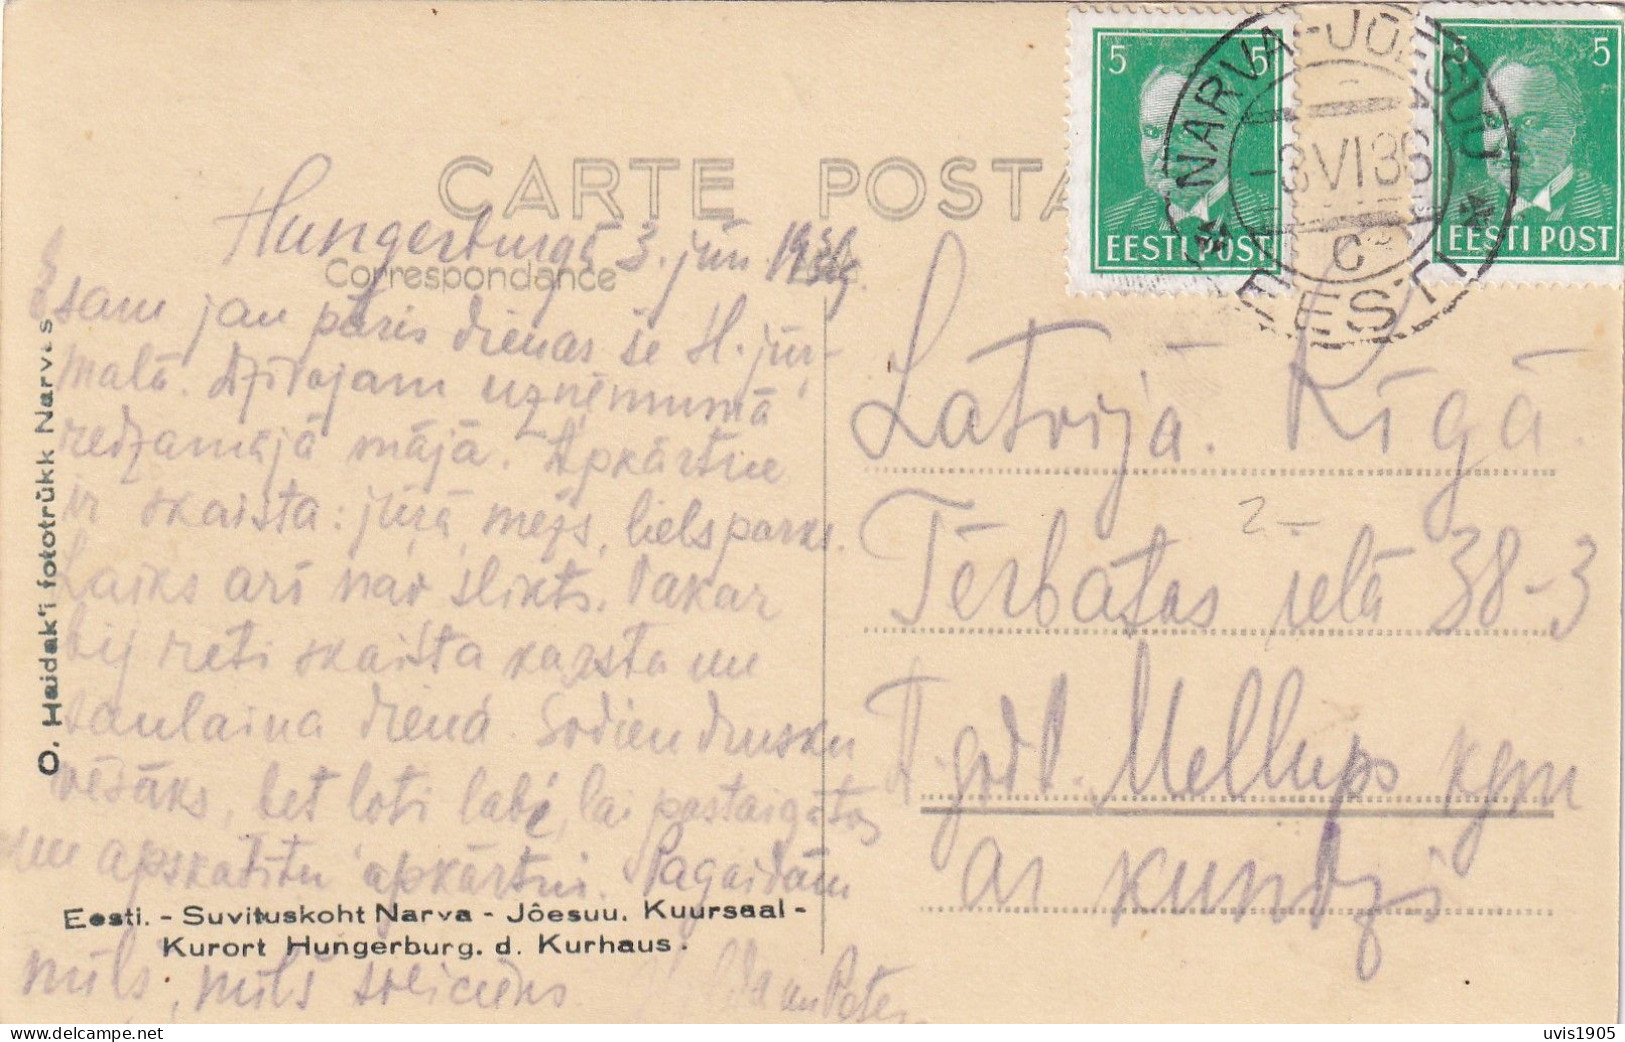 CARTE POSTA
Correspondance
Hungerburgā 3. jūn. 1936.
Esam jau pāris dienas še H. jūr-
malā. Dzīvojam uzņēmumā
redzamajā mājā. Apkārtne
ir skaista: jūŗa, mežs, liels parks.
Laiks arī nav slikts. Vakar
bij reti skaista karsta un
saulaina diena. Šodien drusku
vēsāks, bet ļoti labi, lai pastaigātos
un apskatītu apkārtni. Pagaidām
mīļš, mīļš sveiciens
un
5 5
EESTI POST
5 5
EESTI POST
NARVA-JÕESUU
-3 VI 36
C
EESTI
Latvijā. Rīgā.
2-
Tērbatas ielā 38-3
A. god. Mellups kgm
ar kundzi
O. Haidak'i fototrükk Narvas
Eesti. - Suvituskoht Narva - Jõesuu. Kuursaal -
Kurort Hungerburg. d. Kurhaus.
delcampe.net
uvis1905